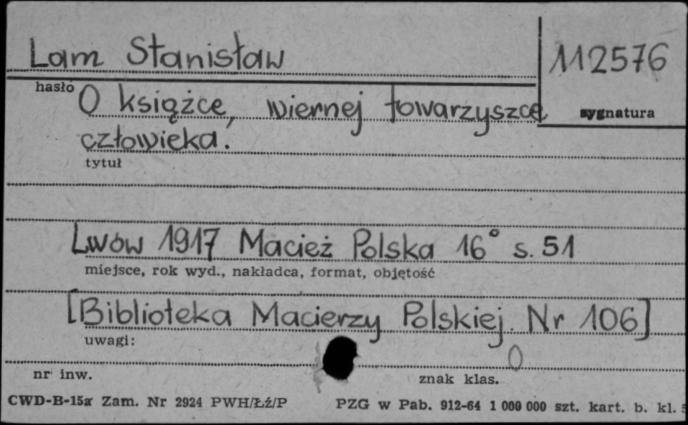 Lam Stanisław
112576
hasło
O książce, wiernej towarzyszce
sygnatura
człowieka.
tytuł
Lwów 1917 Macież Polska 16° s. 51
miejsce, rok wyd., nakładca, format, objętość
[Biblioteka Macierzy Polskiej. Nr 106]
uwagi:
0
nr inw.
znak klas.
CWD-B-15a Zam. Nr 2924 PWH/Łź/P
PZG w Pab. 912-64 1 000 000 szt. kart. b. kl.